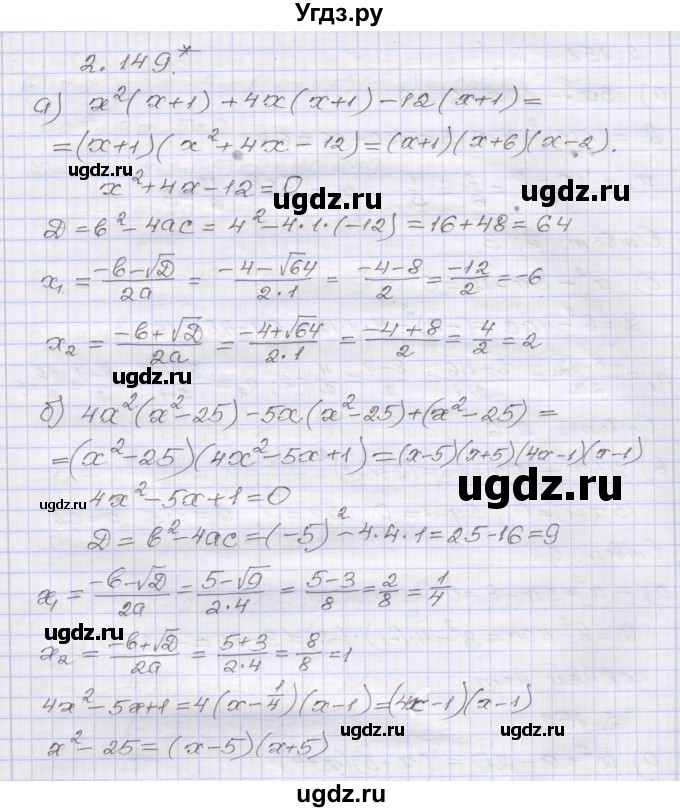 Угдз.ру
2.149.*
а) x²(x+1)+4x(x+1)-12(x+1)=
=(x+1)(x²+4x-12)=(x+1)(x+6)(x-2).
ugdz.ru
x²+4x-12=0
ugdz.ru
ugdz.ru
Д=b²-4ac=4²-4·1·(-12)=16+48=64
x₁=(-b-√Д)/2a=(-4-√64)/2·1=(-4-8)/2=-12/2=-6
x₂=(-b+√Д)/2a=(-4+√64)/2·1=(-4+8)/2=4/2=2
ugdz.ru
б) 4x²(x²-25)-5x(x²-25)+(x²-25)=
=(x²-25)(4x²-5x+1)=(x-5)(x+5)(4x-1)(x-1)
ugdz.ru
4x²-5x+1=0
ugdz.ru
Д=b²-4ac=(-5)²-4·4·1=25-16=9
x₁=(-b-√Д)/2a=(5-√9)/2·4=(5-3)/8=2/8=1/4
ugdz.ru
x₂=(-b+√Д)/2a=(5+3)/2·4=8/8=1
4x²-5x+1=4(x-1/4)(x-1)=(4x-1)(x-1)
ugdz.ru
x²-25=(x-5)(x+5)
ugdz.ru
ugdz.ru